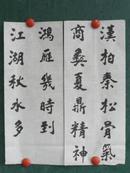 漢柏秦松骨氣
商彝夏鼎精神
鴻雁幾時到
江湖秋水多